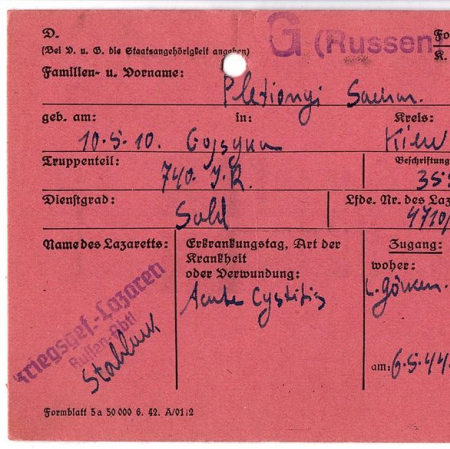 D. G (Russen) Fo
(Bei V. u. G. die Staatsangehörigkeit angeben) K.
Familien- u. Vorname:
Pletionyi Sachar.
geb. am: in: Kreis:
10.5.10. Kiew
Truppenteil: Beschriftung
740. I.R. 355
Dienstgrad: Lfde. Nr. des Laz
Sold 4710/
Name des Lazaretts: Erkrankungstag, Art der Krankheit oder Verwundung: Zugang:
woher:
Kriegsgef.-Lazaren
Russen-Abtl
Acute Cystitis
am: 6.5.44.
Formblatt 5a 50 000 6. 42. A/0112